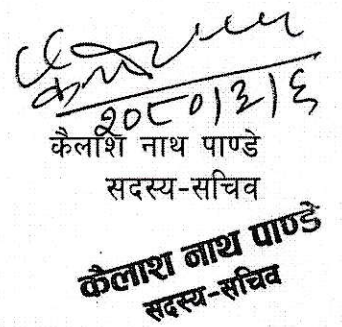 २०८०।२।६
कैलाश नाथ पाण्डे
सदस्य-सचिव
कैलाश नाथ पाण्डे
सदस्य-सचिव